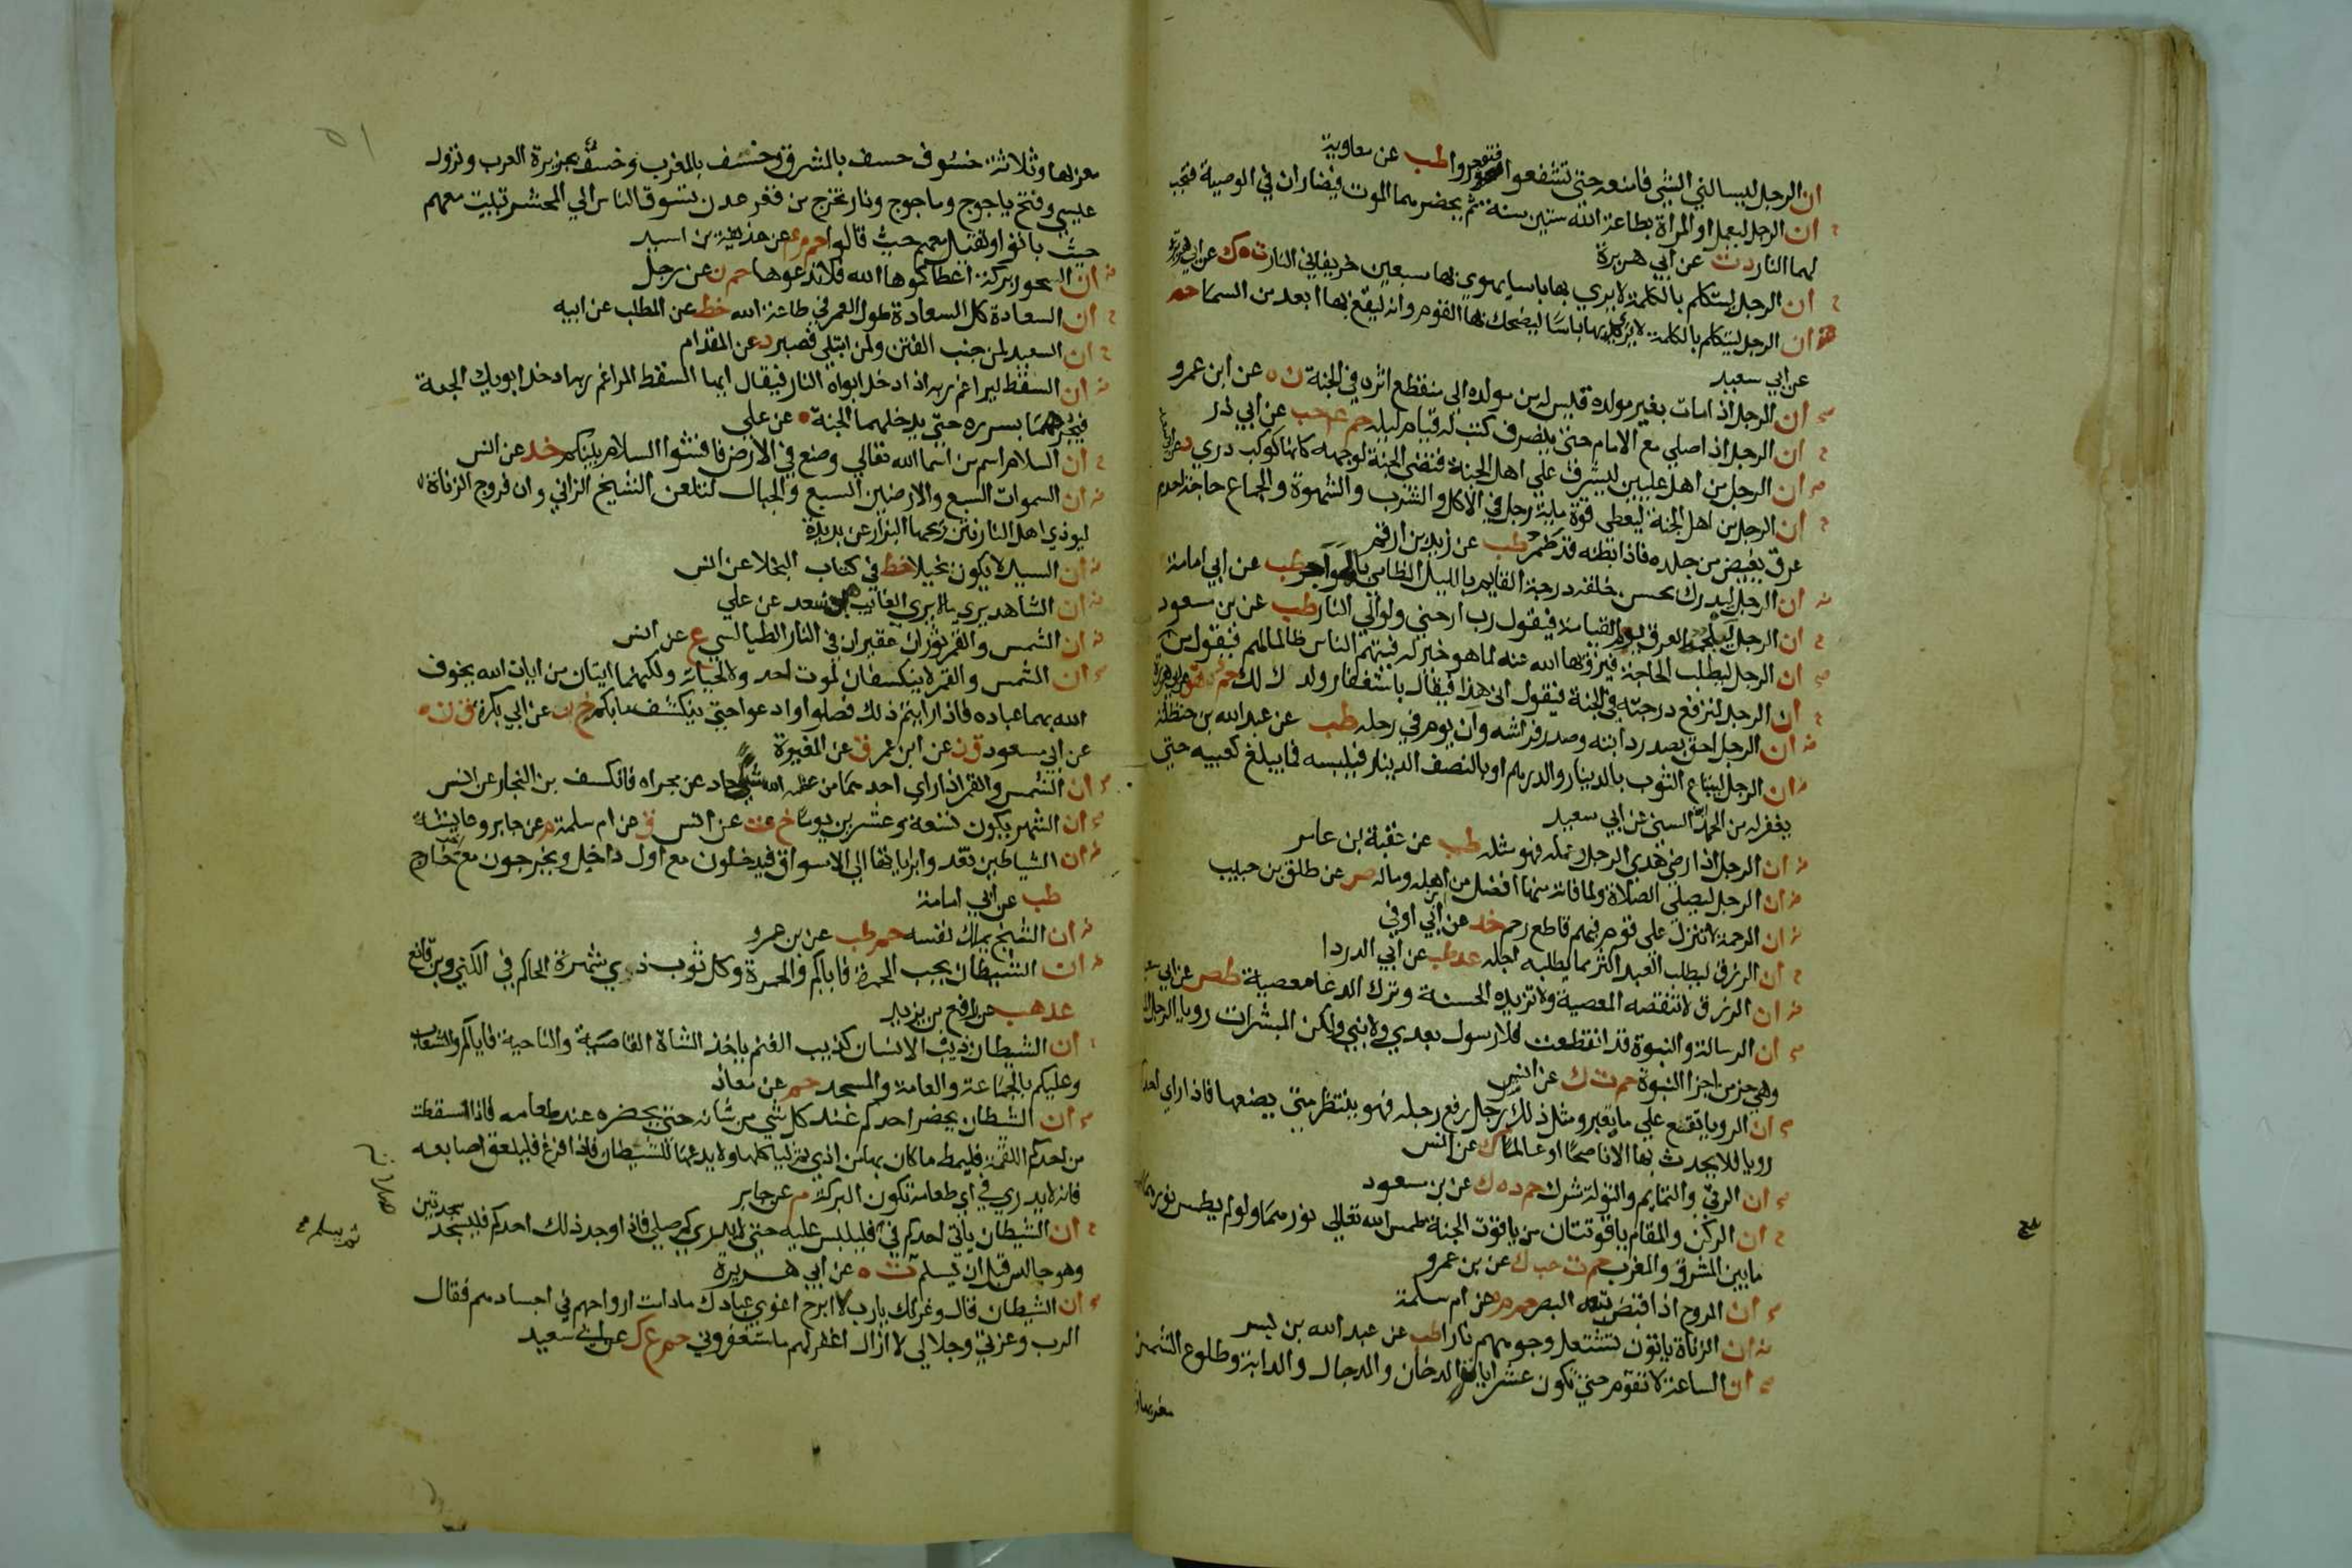 ان الرجل ليسالني الشي فامنعه حتى تشفعوا فتوجروا طب عن معاوية
ان الرجل ليعمل او المراة بطاعة الله ستين سنة ثم يحضرهما الموت فيضاران في الوصية فتجب
لهما النار د ت عن ابي هريرة
ان الرجل ليتكلم بالكلمة لا يري بها باسا يهوي بها سبعين خريفا في النار ت ه ك عن ابي هريرة
ان الرجل ليتكلم بالكلمة لا يري بها باسا ليضحك بها القوم وانه ليقع بها ابعد من السما حم
عن ابي سعيد
ان الرجل اذا مات بغير مولده قيس له من مولده الى منقطع اثره في الجنة ن ه عن ابن عمرو
ان الرجل اذا صلي مع الامام حتى ينصرف كتب له قيام ليلة حم ع حب عن ابي ذر
ان الرجل من اهل عليين ليشرف علي اهل الجنة فتضي الجنة لوجهه كانها كوكب دري د
ان الرجل من اهل الجنة ليعطى قوة ماية رجل في الاكل والشرب والشهوة والجماع حاجة احدهم
عرق يفيض من جلده فاذا بطنه قد ضمر طب عن زيد بن ارقم
ان الرجل ليدرك بحسن خلقه درجة القايم بالليل الظامي بالهواجر طب عن ابي امامة
ان الرجل ليلجمه العرق يوم القيامة فيقول رب ارحني ولو الي النار طب عن بن مسعود
ان الرجل ليطلب الحاجة فيزويها الله عنه لما هو خير له فيتهم الناس ظالما لهم فيقول من
ان الرجل لترفع درجته في الجنة فيقول انى هذا فيقال باستغفار ولدك لك حم ه هق عن ابي هريرة
ان الرجل احق بصدر دابته وصدر فراشه وان يوم في رحله طب عن عبد الله بن حنظلة
ان الرجل ليبتاع الثوب بالدينار والدرهم او بالنصف الدينار فيلبسه فما يبلغ كعبيه حتى
يغفر له من الحمد السني عن ابي سعيد
ان الرجل اذا رضي هدي الرجل وعمله فهو مثله طب عن عقبة بن عامر
ان الرجل ليصلي الصلاة ولما فاته منها افضل من اهله وماله ص عن طلق بن حبيب
ان الرحمة لا تنزل على قوم فيهم قاطع رحم خد عن ابن ابي اوفي
ان الرزق ليطلب العبد اكثر مما يطلبه اجله عد طب عن ابي الدردا
ان الرزق لا تنقصه المعصية ولا تزيده الحسنة وترك الدعا معصية طص عن ابي سعيد
ان الرسالة والنبوة قد انقطعت فلا رسول بعدي ولا نبي ولكن المبشرات رويا الرجل
وهي جز من اجزا النبوة حم ت ك عن انس
ان الرويا تقع علي ما يعبر ومثل ذلك رجل رفع رجله فهو ينتظر متى يضعها فاذا راي احدكم
رويا فلا يحدث بها الا ناصحا او عالما ك عن انس
ان الرقى والتمايم والتولة شرك حم د ه ك عن بن مسعود
ان الركن والمقام ياقوتتان من ياقوت الجنة طمس الله تعالي نورهما ولو لم يطمس نورهما
ما بين المشرق والمغرب حم ت حب ك عن بن عمرو
ان الروح اذا قبض تبعه البصر حم م ه عن ام سلمة
ان الزناة ياتون تشتعل وجوههم نارا طب عن عبد الله بن بسر
ان الساعة لا تقوم حتى تكون عشر ايات الدخان والدجال والدابة وطلوع الشمس
مغربها و
مغربها وثلاثة خسوف خسف بالمشرق وخسف بالمغرب وخسف بجزيرة العرب ونزول
عيسي وفتح ياجوج وماجوج ونار تخرج من قعر عدن تسوق الناس الي المحشر تبيت معهم
حيث باتوا وتقيل معهم حيث قالوا حم م ع عن حذيفة بن اسيد
ان السحور بركة اعطاكموها الله فلا تدعوها حم ن عن رجل
ان السعادة كل السعادة طول العمر في طاعة الله خط عن المطلب عن ابيه
ان السعيد لمن جنب الفتن ولمن ابتلي فصبر د عن المقدام
ان السقط ليراغم ربه اذا ادخل ابواه النار فيقال ايها السقط المراغم ربه ادخل ابويك الجنة
فيجرهما بسرره حتى يدخلهما الجنة ه عن علي
ان السلام اسم من اسما الله تعالي وضع في الارض فافشوا السلام بينكم خد عن انس
ان السموات السبع والارضين السبع والجبال لتلعن الشيخ الزاني وان فروج الزناة
ليوذي اهل النار نتن ريحها البزار عن بريدة
ان السيد لا يكون بخيلا خط في كتاب البخلا عن انس
ان الشاهد يري ما لا يري الغايب بن سعد عن علي
ان الشمس والقمر ثوران عقيران في النار الطيالسي ع عن انس
ان الشمس والقمر لا ينكسفان لموت احد ولا لحياته ولكنهما ايتان من ايات الله يخوف
الله بهما عباده فاذا رايتم ذلك فصلوا وادعوا حتى ينكشف ما بكم خ ن عن ابي بكرة ق ن ه
عن ابي مسعود ق ن عن ابن عمر ق عن المغيرة
ان الشمس والقمر اذا راي احدهما من عظمة الله شي حاد عن مجراه فانكسف بن النجار عن انس
ان الشهر يكون تسعة وعشرين يوما خ ت عن انس ق عن ام سلمة م عن جابر وعايشة
ان الشياطين تغدو براياتها الي الاسواق فيدخلون مع اول داخل ويخرجون مع اخر خارج
طب عن ابي امامة
ان الشيخ يملك نفسه حم طب عن بن عمرو
ان الشيطان يحب الحمرة فاياكم والحمرة وكل ثوب ذي شهرة الحاكم في الكني وبن قانع
عد هب عن رافع بن يزيد
ان الشيطان ذيب الانسان كذيب الغنم ياخذ الشاة القاصية والناحية فاياكم والشعاب
وعليكم بالجماعة والعامة والمسجد حم عن معاذ
ان الشيطان يحضر احدكم عند كل شي من شانه حتى يحضره عند طعامه فاذا سقطت
من احدكم اللقمة فليمط ما كان بها من اذي ثم لياكلها ولا يدعها للشيطان فاذا فرغ فليلعق اصابعه
فانه لا يدري في اي طعامه تكون البركة م عن جابر
ان الشيطان ياتي احدكم في فيلبس عليه حتى لا يدري كم صلي فاذا وجد ذلك احدكم فليسجد سجدتين
وهو جالس قبل ان يسلم ت ه عن ابي هريرة
ان الشيطان قال وعزتك يارب لا ابرح اغوي عبادك ما دامت ارواحهم في اجسادهم فقال
الرب وعزتي وجلالي لا ازال اغفر لهم ما استغفروني حم ع ك عن ابي سعيد
صلاته
ثم يسلم